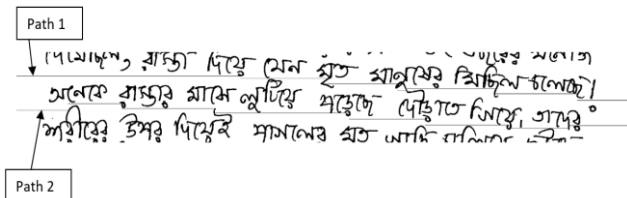 Path 1
রাস্তা দিয়ে যেন মৃত মানুষের মিছিল চলেছে।
অনেকে রাস্তার মাঝে লুটিয়ে পড়েছে দৌড়াতে গিয়ে, তাদের
শরীরের উপর দিয়েই পাগলের মত
Path 2